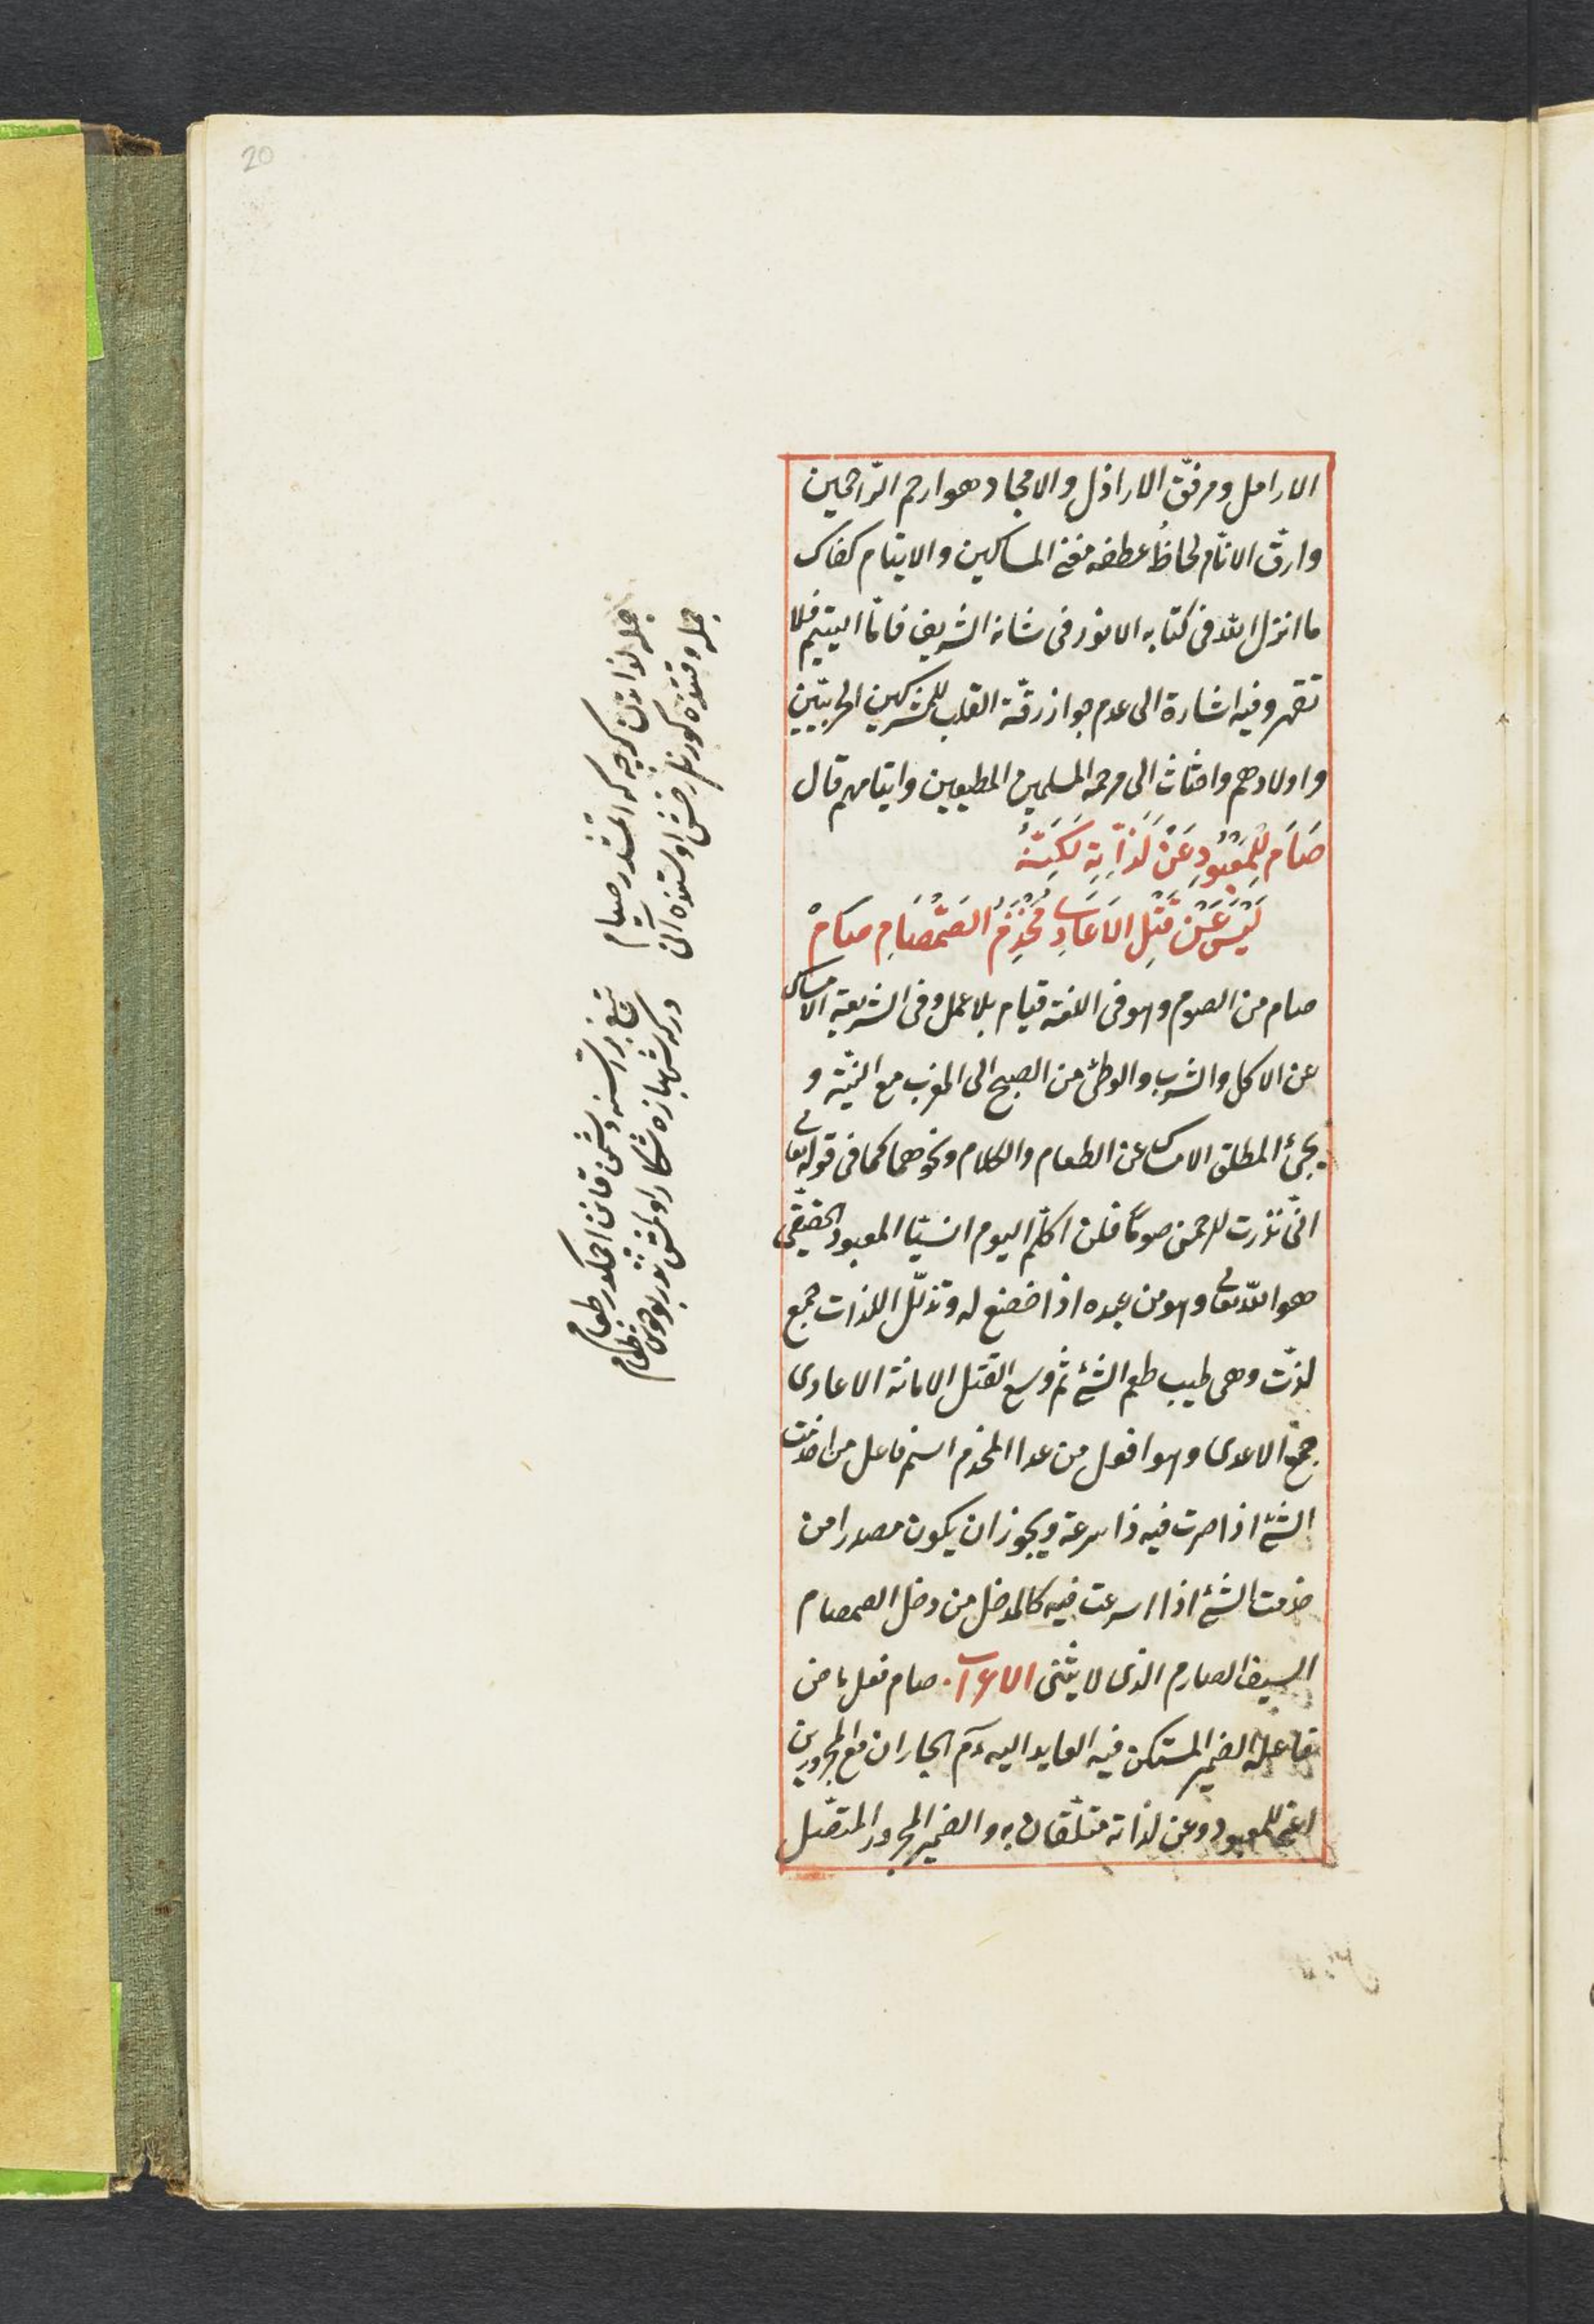 20
الارامل ومرفّق الاراذل والامجاد هو ارحم الرّاحمين
وارقّ الانام لحاظُ عطفه مغنى المساكين والايتام كفاك
ما انزل الله فى كتابه الانور فى شانه الشريف فامّا اليتيم فلا
تقهر وفيه اشارة الى عدم جواز رقّة القلب للمشركين الحربيّين
واولادهم واحثاث الى مرحمة المسلمين المطيعين وايتامهم قال
صَامَ لِلْمَعْبُودِ عَنْ لَذَّاتِهِ لَكِنَّهُ
لَيْسَ عَنْ قَتْلِ الاَعَادِى مُخْذِمُ الصَّمْصَامِ صَامْ
صام من الصوم وهو فى اللغة قيام بلا عمل وفى الشريعة الامساك
عن الاكل والشرب والوطئ من الصبح الى المغرب مع النيّة و
يجئ المطلق الامساك عن الطعام والكلام ونحوهما كما فى قوله تعالى
انّى نذرت للرحمن صوماً فلن اكلّم اليوم انسيّا المعبود الحقيقى
هو الله تعالى وهو من عبده اذا خضع له وتذلّل اللذات جمع
لذّت وهى طيب طعم الشئ ثم وسع القتل الاماتة الاعادى
جمع الاعدى وهو افعل من عدا المخذم اسم فاعل من اخذمت
الشئ اذا صرت فيه ذا سرعة ويجوز ان يكون مصدرا من
خذمت الشئ اذا اسرعت فيه كالمدخل من دخل الصمصام
السيف الصارم الذى لا يثنى الاعراب صام فعل ماض
فاعله الضمير المستكن فيه العايد اليه عم الجاران مع المجرورين
اعنى للمعبود وعن لذاته متعلّقان به والضمير المجرور المتصّل
جمله وقتده كورنلر رخش اوستنده آنى
دركه شهبازه شكار اولمش تذر بو خوش خرام
جمله لذاتدن كرچه كه ايتمشدر صيام
تيغ بر دشمن قانن احمكدر طعام